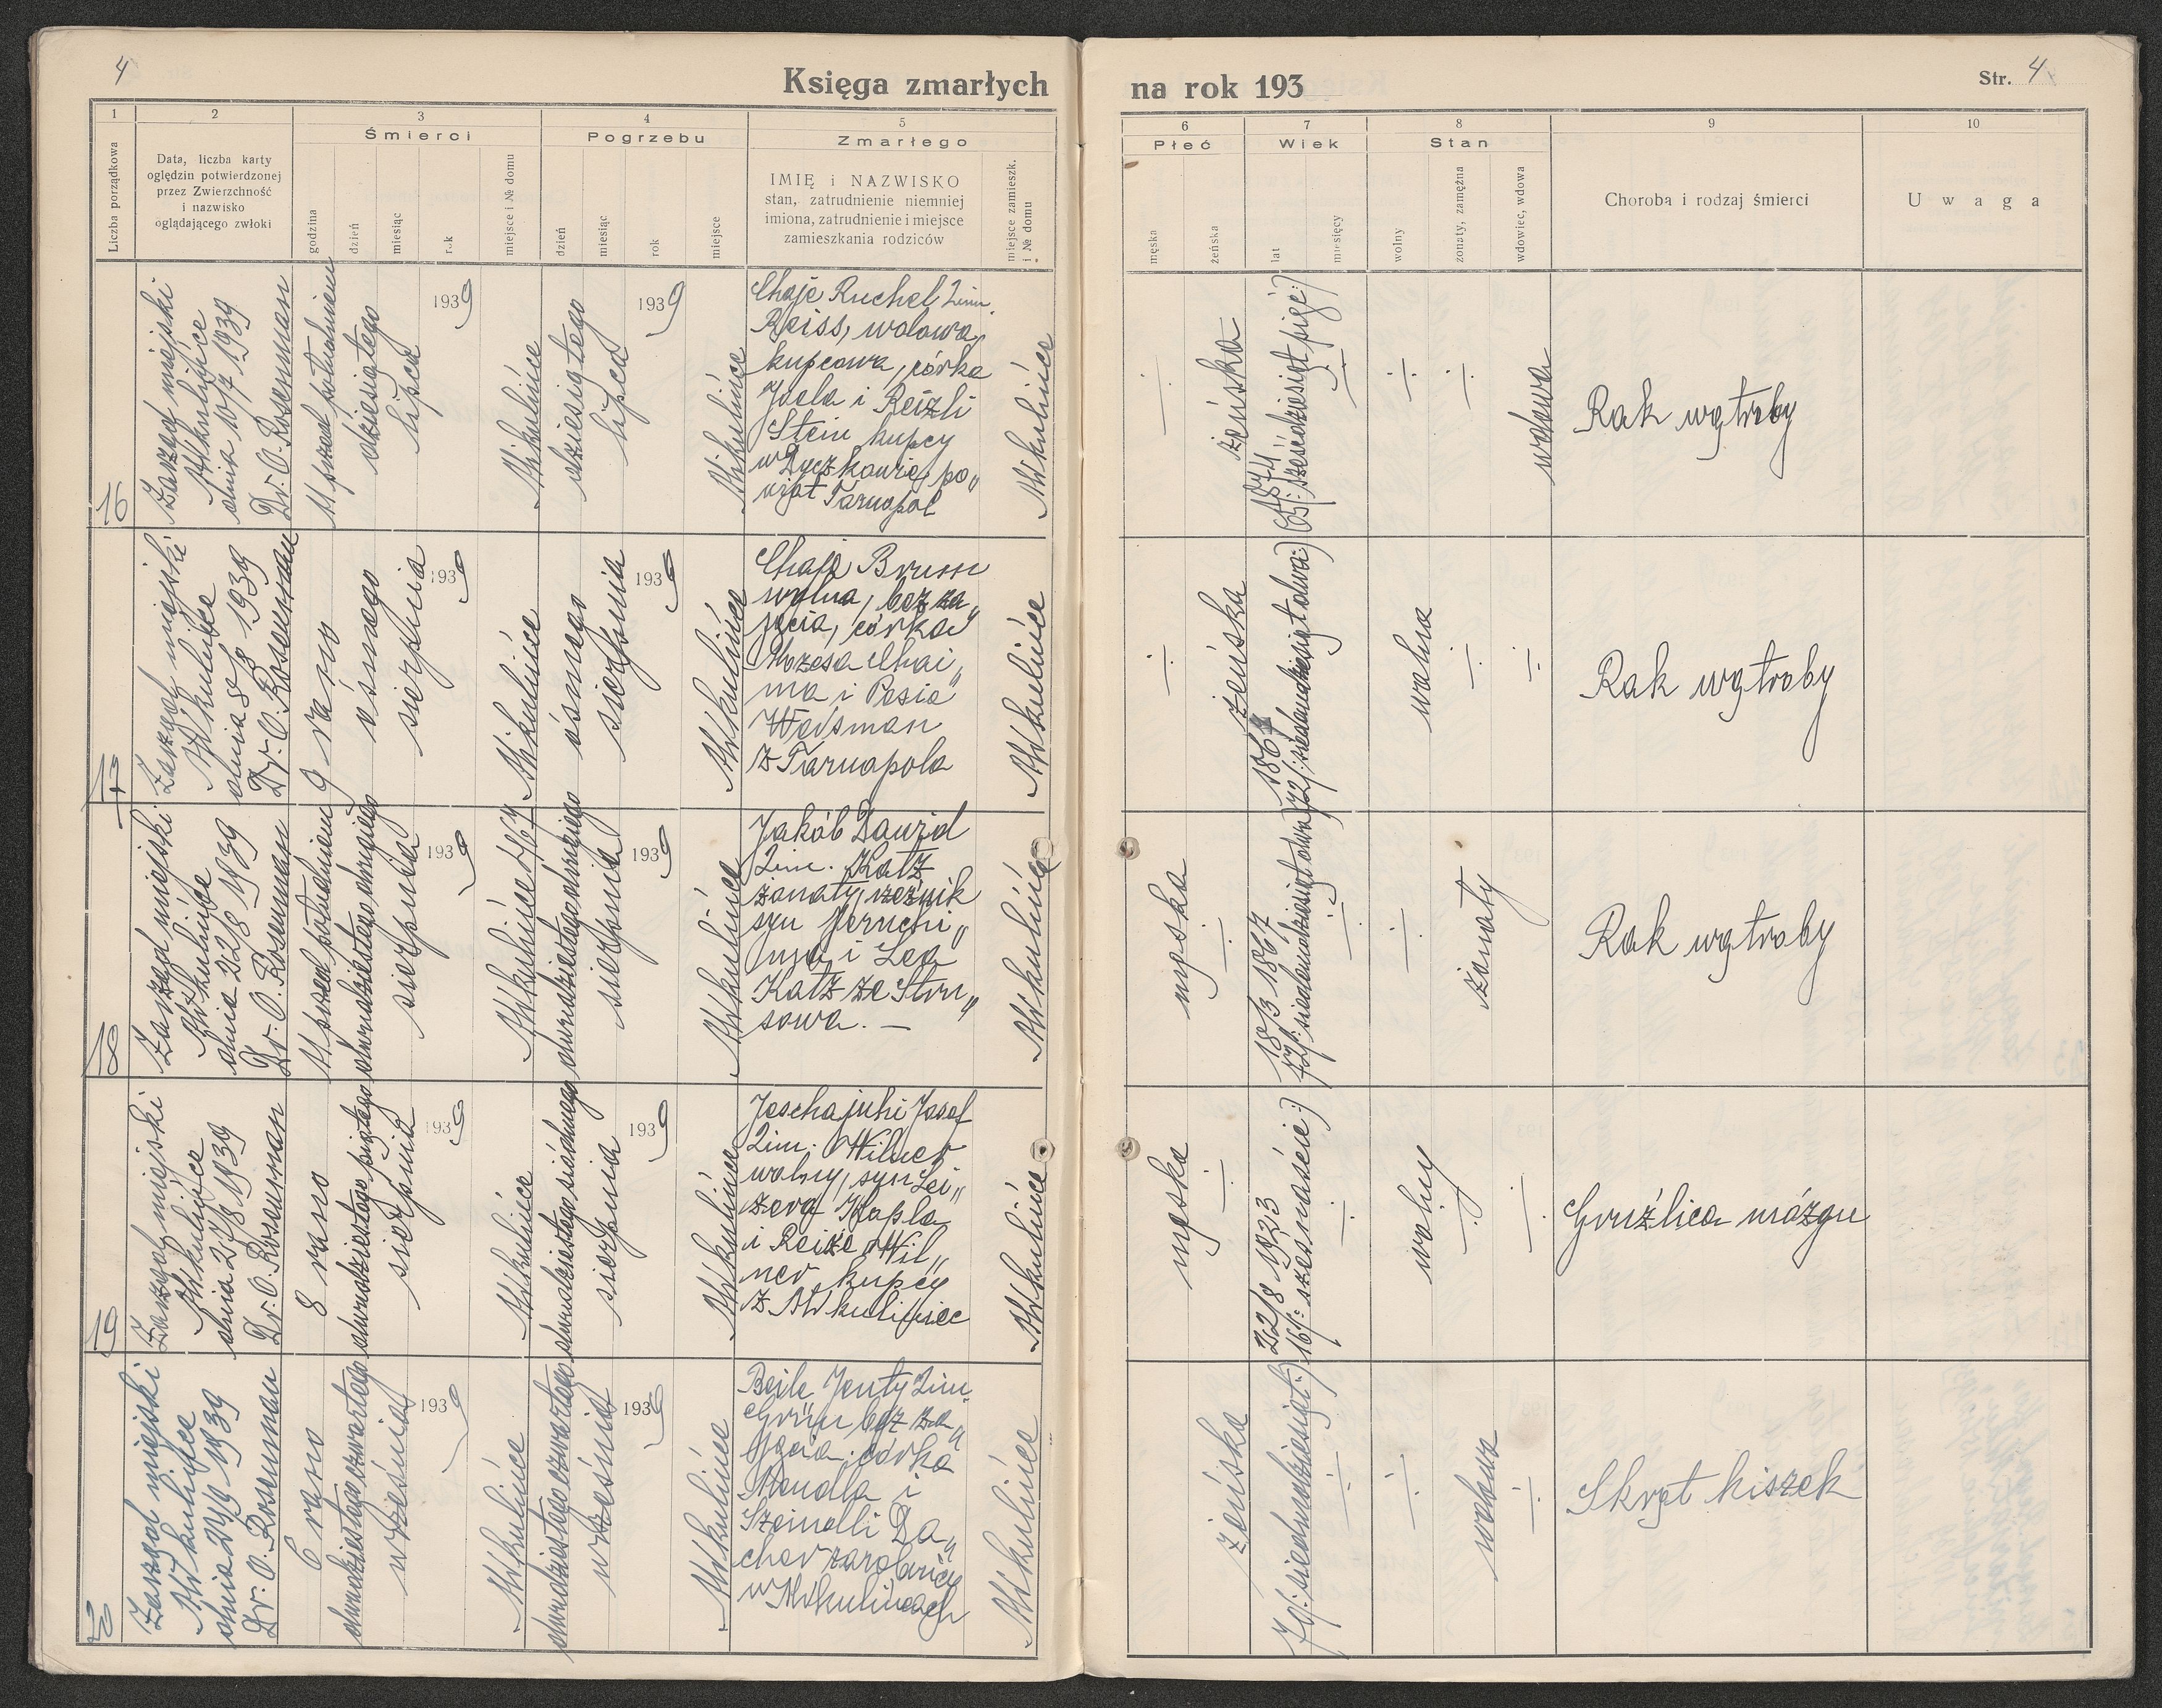 4
Księga zmarłych
na rok 193
Str. 4
1
2
3
4
5
6
7
8
9
10
Liczba porządkowa
Data, liczba karty
oględzin potwierdzonej
przez Zwierzchność
i nazwisko
oglądającego zwłoki
Śmierci
godzina
dzień
miesiąc
rok
miejsce i № domu
Pogrzebu
dzień
miesiąc
rok
miejsce
Zmarłego
IMIĘ i NAZWISKO
stan, zatrudnienie niemniej
imiona, zatrudnienie i miejsce
zamieszkania rodziców
miejsce zamieszk.
i № domu
Płeć
męska
żeńska
Wiek
lat
miesięcy
Stan
wolny
żonaty, zamężna
wdowiec, wdowa
Choroba i rodzaj śmierci
Uwaga
16
Zarząd miejski
Mikulińce
dnia 10/7 1939
Dr. O. Rosenman
11 przed południem
dziesiątego
lipca
1939
Mikulińce
dziesiątego
lipca
1939
Mikulińce
Chaje Ruchel 2im.
Reiss, wdowa,
kupcowa, córka
Joela i Reizli
Stein kupcy
w Byczkowie, po„
wiat Tarnopol
Mikulińce
żeńska
1874
65/: sześćdziesiąt pięć:)
wdowa
Rak wątroby
17
Zarząd miejski
Mikulińce
dnia 8/8 1939
Dr. O. Rosenman
9 rano
ósmego
sierpnia
1939
Mikulińce
ósmego
sierpnia
1939
Mikulińce
Chaje Brumm
wolna, bez za„
jęcia, córka
Mozesa Chai„
ma i Pesia
Weisman
z Tarnopola
Mikulińce
żeńska
1867
72/: siedemdziesiąt dwa:)
wolna
Rak wątroby
18
Zarząd miejski
Mikulińce
dnia 22/8 1939
Dr. O. Rosenman
11 przed południem
dwudziestego drugiego
sierpnia
1939
Mikulińce
dwudziestego drugiego
sierpnia
1939
Mikulińce
Jakób Dawid
2im. Katz
żonaty, rzeźnik
syn Jeruchi„
ma i Lea
Katz ze Stru„
sowa. —
Mikulińce
męska
18/3 1867
72/: siedemdziesiąt dwa:)
żonaty
Rak wątroby
19
Zarząd miejski
Mikulińce
dnia 27/8 1939
Dr. O. Rosenman
8 rano
dwudziestego piątego
sierpnia
1939
Mikulińce
dwudziestego siódmego
sierpnia
1939
Mikulińce
Jeschajuhi Josef
2im. Wilner
wolny, syn Lei„
zera Kapla
i Reize Wil„
ner kupcy
z Mikuliniec
Mikulińce
męska
22/8 1923
16/: szesnaście:)
wolny
Gruźlica mózgu
20
Zarząd miejski
Mikulińce
dnia 24/9 1939
Dr. O. Rosenman
6 rano
dwudziestego czwartego
września
1939
Mikulińce
dwudziestego czwartego
września
1939
Mikulińce
Beile Jenty 2im.
Grün bez za„
jęcia, córka
Mendla i
Szeindli Da„
cher zarobnicy
w Mikulińcach
Mikulińce
żeńska
70/: siedemdziesiąt:)
wolna
Skręt kiszek